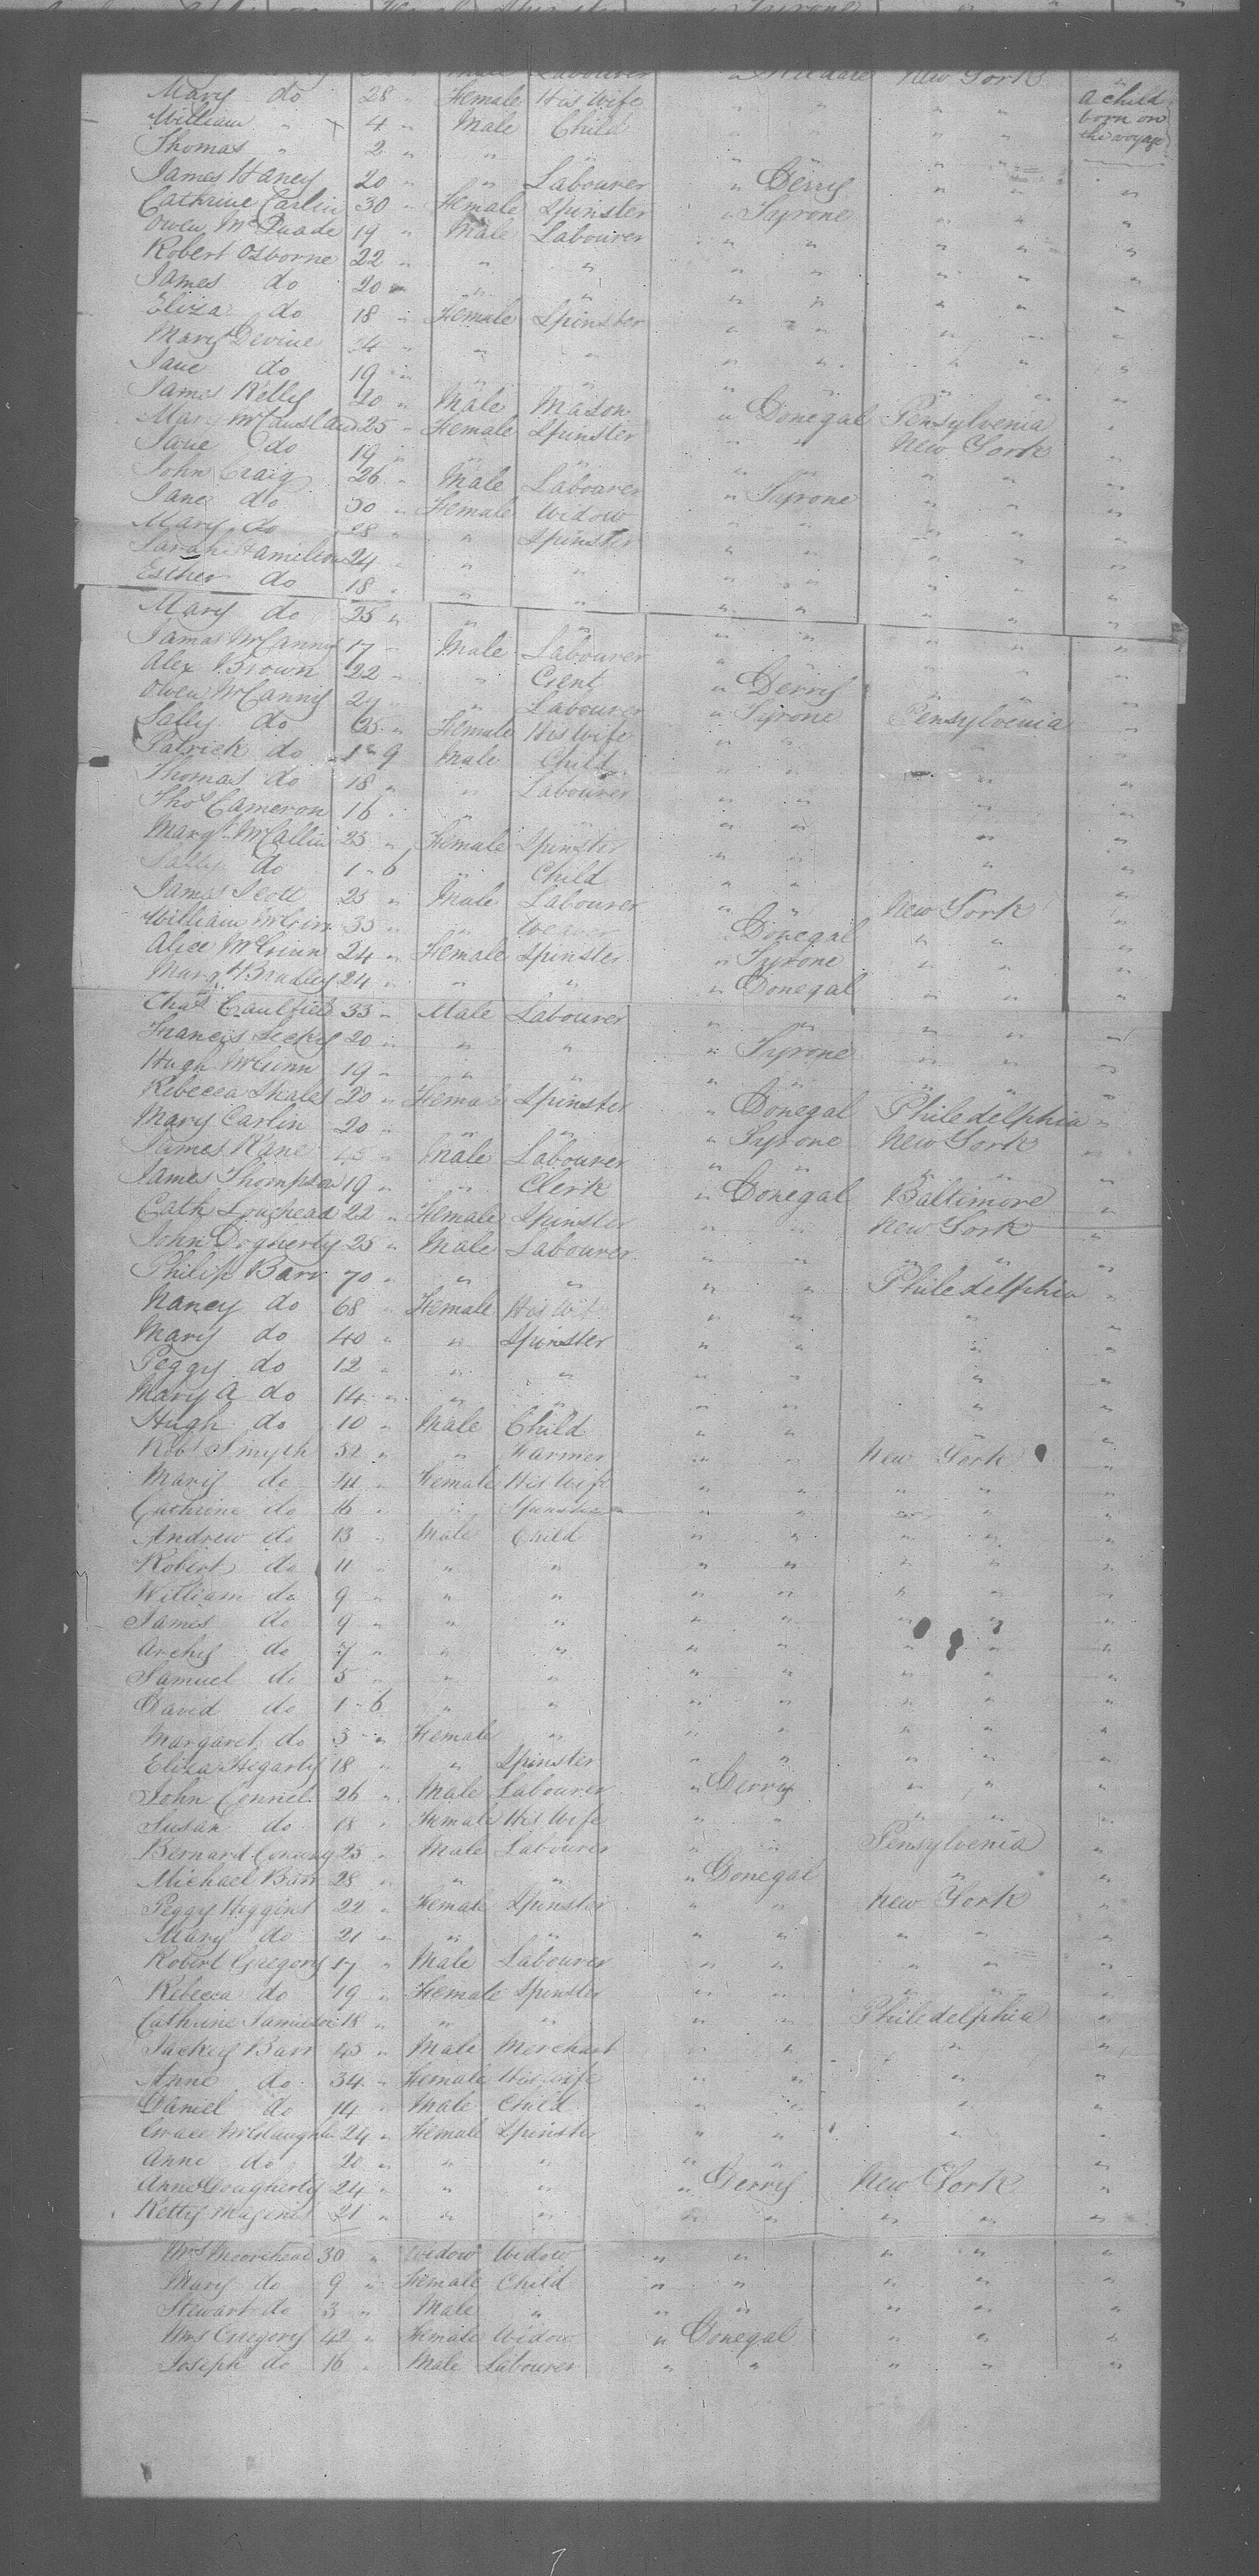 Labourer " Kildare New York
Mary do 28 " Female His Wife " " " " A child
William " 4 " Male Child " " " " born on
Thomas " 2 " " " " " " " the voyage
James Haney 20 " " Labourer " Derry " " "
Cathrine Carlin 30 " Female Spinster " Tyrone " " "
Owen McQuade 19 " Male Labourer " " " " "
Robert Osborne 22 " " " " " " " "
James do 20 " " " " " " " "
Eliza do 18 " Female Spinster " " " " "
Mary Devine 24 " " " " " " " "
Jane do 19 " " " " " " " "
James Kelly 20 " Male Mason " Donegal Pensylvenia "
Mary McCausland 25 " Female Spinster " " New York "
Jane do 19 " " " " " " " "
John Craig 26 " Male Labourer " Tyrone " " "
Jane do 50 " Female Widow " " " " "
Mary do 28 " " Spinster " " " " "
Sarah Hamilton 24 " " " " " " " "
Esther do 18 " " " " " " " "
Mary do 25 " " " " " " " "
James McCanny 17 " Male Labourer " " " " "
Alex Brown 22 " " Gent " Derry " " "
Owen McCanny 29 " " Labourer " Tyrone Pensylvenia "
Sally do 25 " Female His Wife " " " "
Patrick do 1 " 9 Male Child " " " "
Thomas do 18 " " Labourer " " " "
Thos Cameron 16 " " " " " " "
Margt McCallin 25 " Female Spinster " " " "
Sally do 1 " 6 " Child " " " "
James Scott 25 " Male Labourer " " New York "
William McGinn 35 " " Weaver " Donegal " " "
Alice McGinn 24 " Female Spinster " Tyrone " " "
Margt Bradley 24 " " " " Donegal " " "
Chas Caulfield 33 " Male Labourer " " " " "
Francis Lecky 20 " " " " Tyrone " " "
Hugh McGinn 19 " " " " " " " "
Rebecca Shales 20 " Female Spinster " Donegal Philedelphia "
Mary Carlin 20 " " " " Tyrone New York "
James Kane 45 " Male Labourer " " " " "
James Thompson 19 " " Clerk " Donegal Baltimore "
Cath Loughead 22 " Female Spinster " " New York "
John Dogherty 25 " Male Labourer " " " " "
Philip Barr 70 " " " " " Philedelphia "
Nancy do 68 " Female His Wife " " " "
Mary do 40 " " Spinster " " " "
Peggy do 12 " " " " " " "
Mary A do 14 " " " " " " "
Hugh do 10 " Male Child " " " "
Robt Smyth 52 " " Farmer " " New York "
Mary do 41 " Female His Wife " " " " "
Cathrine do 16 " " Spinster " " " " "
Andrew do 13 " Male Child " " " " "
Robert do 11 " " " " " " " "
William do 9 " " " " " " " "
James do 9 " " " " " " " "
Archy do 7 " " " " " " " "
Samuel do 5 " " " " " " " "
David do 1 " 6 " " " " " " "
Margaret do 3 " Female " " " " " "
Eliza Hegarty 18 " " Spinster " " " " "
John Connel 26 " Male Labourer " Derry " " "
Susan do 18 " Female His Wife " " " " "
Bernard Conway 25 " Male Labourer " " Pensylvenia "
Michael Barr 28 " " " " Donegal " "
Peggy Higgins 22 " Female Spinster " " New York "
Mary do 21 " " " " " " " "
Robert Gregory 17 " Male Labourer " " " " "
Rebecca do 19 " Female Spinster " " " " "
Cathrine Jamieson 18 " " " " " Philedelphia "
Jackey Barr 45 " Male Merchant " " " "
Anne do 34 " Female His Wife " " " "
Daniel do 14 " Male Child " " " "
Grace McClaughlin 24 " Female Spinster " " " "
Anne do 20 " " " " " " "
Anne Dougherty 24 " " " " Derry New York "
Ketty 21 " " " " " " " "
Mrs Moorehead 30 " Widow Widow " " " " "
Mary do 9 " Female Child " " " " "
Stewart do 3 " Male " " " " " "
Mrs Gregory 42 " Female Widow " Donegal " " "
Joseph do 16 " Male Labourer " " " " "